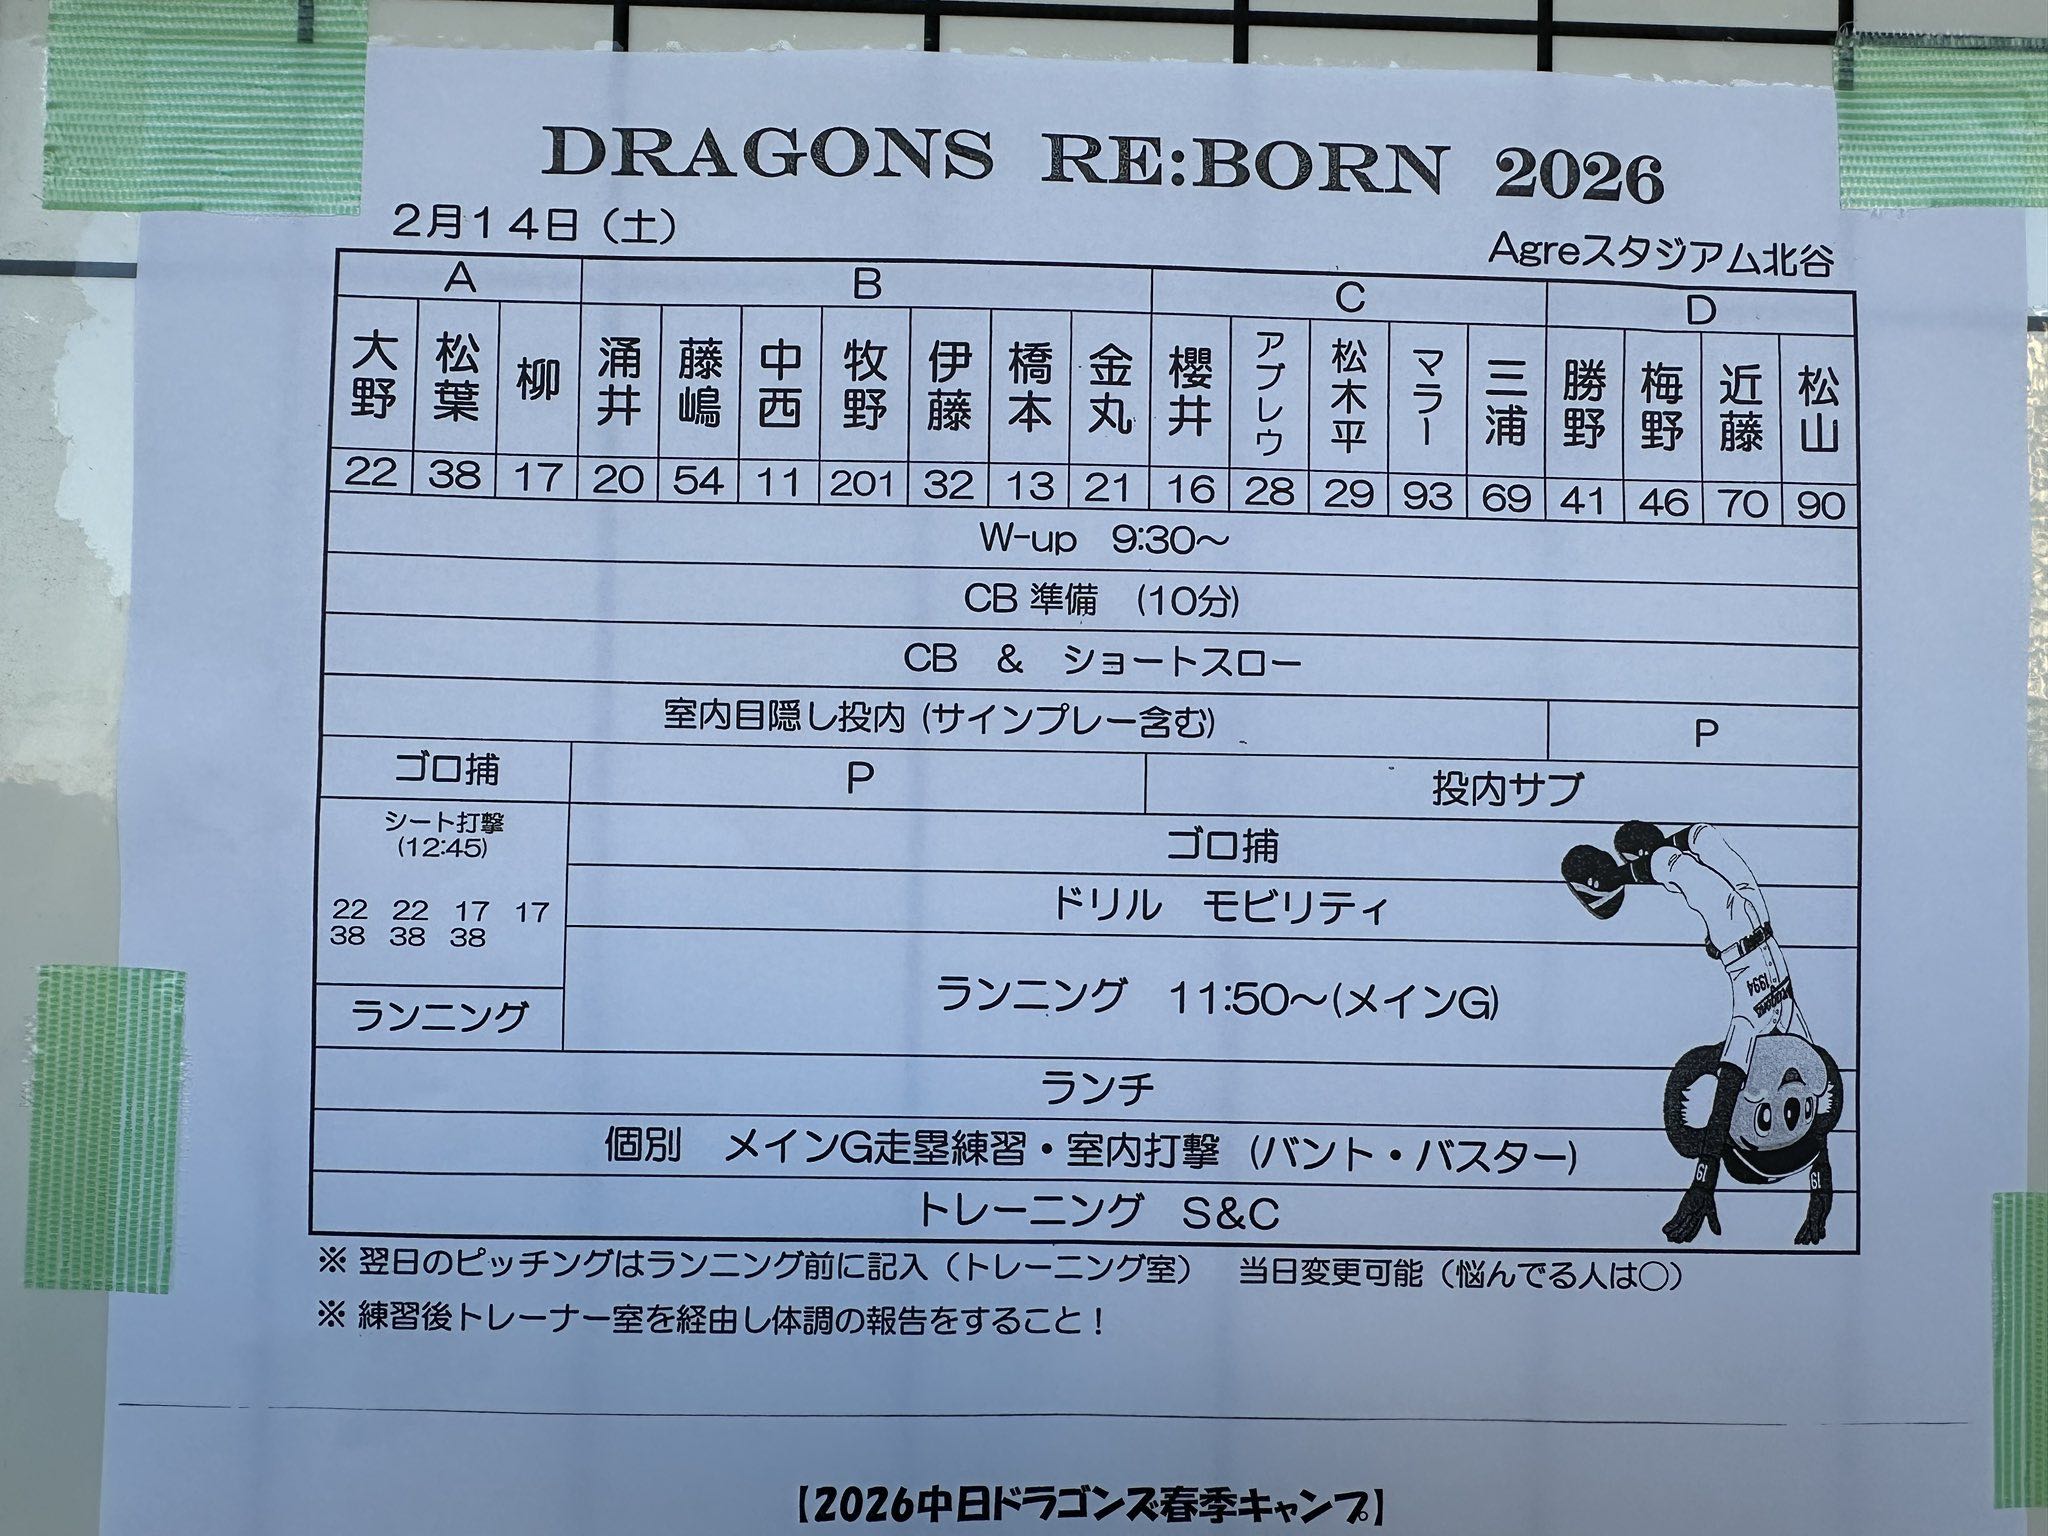 DRAGONS RE:BORN 2026
2月14日（土）
Agreスタジアム北谷
A B C D
大野 松葉 柳 涌井 藤嶋 中西 牧野 伊藤 橋本 金丸 櫻井 アブレウ 松木平 マラー 三浦 勝野 梅野 近藤 松山
22 38 17 20 54 11 201 32 13 21 16 28 29 93 69 41 46 70 90
W-up 9:30～
CB 準備 (10分)
CB & ショートスロー
室内目隠し投内 (サインプレー含む) P
ゴロ捕 P 投内サブ
シート打撃
(12:45)
22 22 17 17
38 38 38
ゴロ捕
ドリル モビリティ
ランニング 11:50～(メインG)
ランニング
ランチ
個別 メインG走塁練習・室内打撃 (バント・バスター)
トレーニング S&C
1994
19 19
※ 翌日のピッチングはランニング前に記入（トレーニング室） 当日変更可能（悩んでる人は○）
※ 練習後トレーナー室を経由し体調の報告をすること！
【2026中日ドラゴンズ春季キャンプ】